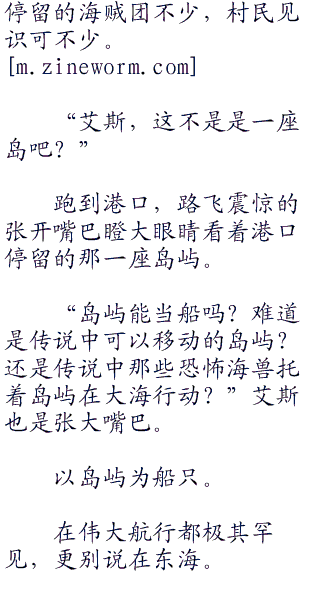 停留的海贼团不少，村民见
识可不少。
[m.zineworm.com]
“艾斯，这不是是一座
岛吧？”
跑到港口，路飞震惊的
张开嘴巴瞪大眼睛看着港口
停留的那一座岛屿。
“岛屿能当船吗？难道
是传说中可以移动的岛屿？
还是传说中那些恐怖海兽托
着岛屿在大海行动？”艾斯
也是张大嘴巴。
以岛屿为船只。
在伟大航行都极其罕
见，更别说在东海。